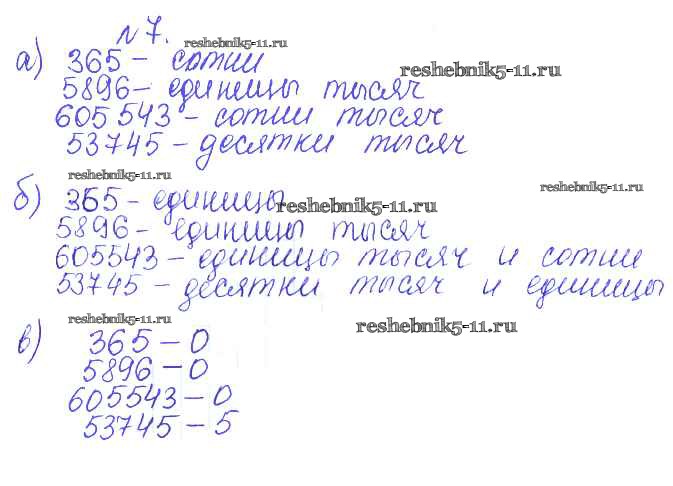 № 7.
reshebnik5-11.ru
а) 365 – сотни
reshebnik5-11.ru
5896 – единицы тысяч
605 543 – сотни тысяч
53745 – десятки тысяч
reshebnik5-11.ru
reshebnik5-11.ru
б) 365 – единицы
reshebnik5-11.ru
5896 – единицы тысяч
605543 – единицы тысяч и сотни
53745 – десятки тысяч и единицы
reshebnik5-11.ru
reshebnik5-11.ru
в) 365 – 0
5896 – 0
605543 – 0
53745 – 5